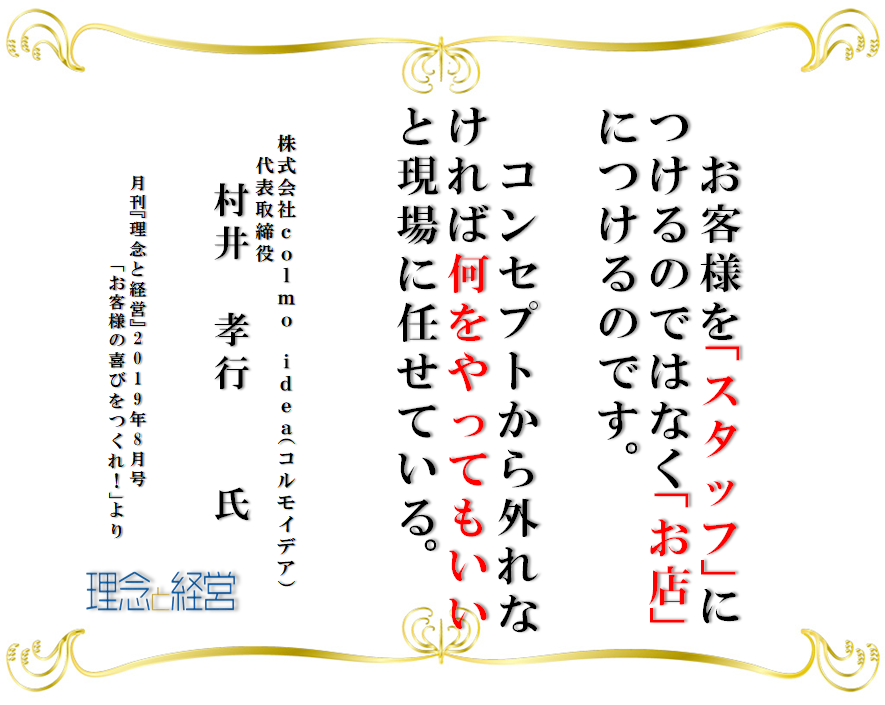 お客様を「スタッフ」に
つけるのではなく「お店」
につけるのです。
コンセプトから外れな
ければ何をやってもいい
と現場に任せている。
株式会社colmo idea(コルモイデア)
代表取締役
村井 孝行 氏
月刊『理念と経営』2019年8月号
「お客様の喜びをつくれ!」より
理念と経営